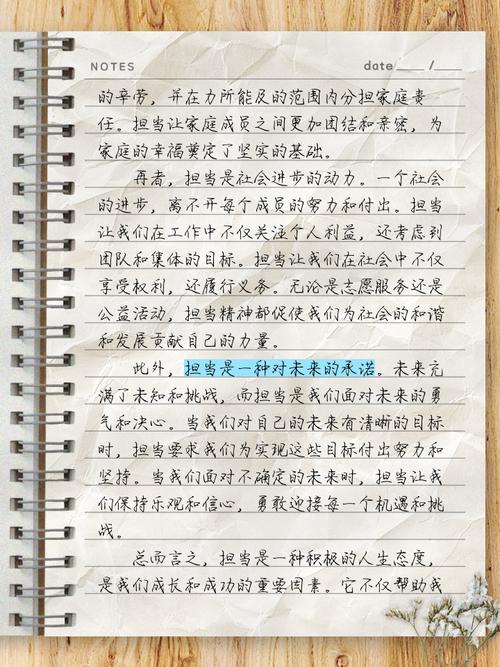 NOTES
date ____ / ____
的辛劳，并在力所能及的范围内分担家庭责
任。担当让家庭成员之间更加团结和亲密，为
家庭的幸福奠定了坚实的基础。
再者，担当是社会进步的动力。一个社会
的进步，离不开每个成员的努力和付出。担当
让我们在工作中不仅关注个人利益，还考虑到
团队和集体的目标。担当让我们在社会中不仅
享受权利，还履行义务。无论是志愿服务还是
公益活动，担当精神都促使我们为社会的和谐
和发展贡献自己的力量。
此外，担当是一种对未来的承诺。未来充
满了未知和挑战，而担当是我们面对未来的勇
气和决心。当我们对自己的未来有清晰的目标
时，担当要求我们为实现这些目标付出努力和
坚持。当我们面对不确定的未来时，担当让我
们保持乐观和信心，勇敢迎接每一个机遇和挑
战。
总而言之，担当是一种积极的人生态度，
是我们成长和成功的重要因素。它不仅帮助我